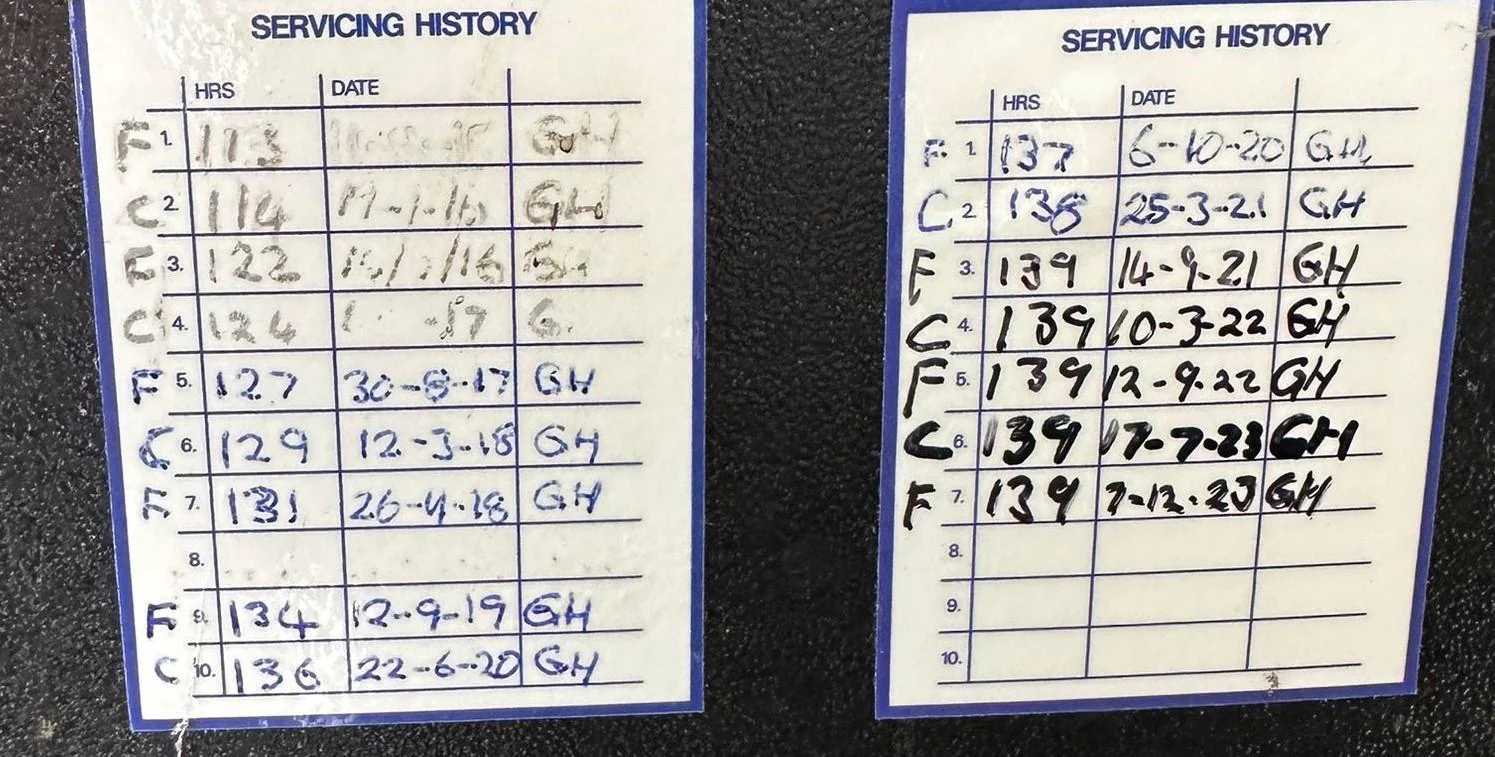 SERVICING HISTORY
HRS DATE
F 1. 113 GH
C 2. 114 GH
F 3. 122
C 4. 124
F 5. 127 30-8-17 GH
C 6. 129 12-3-18 GH
F 7. 131 GH
8.
F 9. 134 12-9-19 GH
C 10. 136 22-6-20 GH
SERVICING HISTORY
HRS DATE
F 1. 137 6-10-20 GH
C 2. 138 25-3-21 GH
F 3. 139 14-9-21 GH
C 4. 139 10-3-22 GH
F 5. 139 12-9-22 GH
C 6. 139 17-7-23 GH
F 7. 139 7-12-23 GH
8.
9.
10.